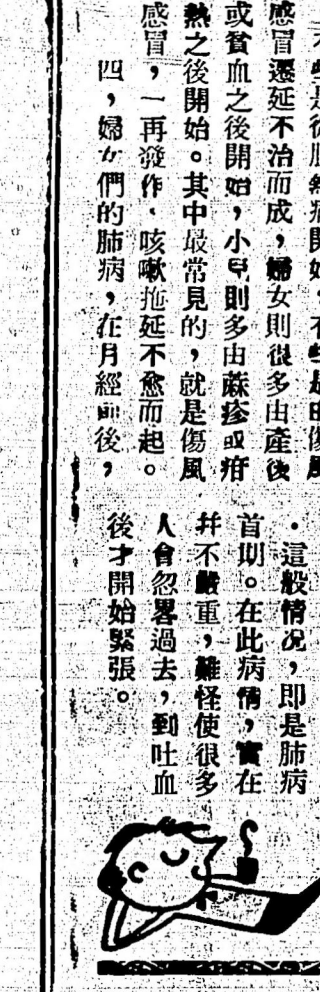 感冒遷延不治而成，婦女則很多由產後
或貧血之後開始，小兒則多由蔴疹或疳
熱之後開始。其中最常見的，就是傷風
感冒，一再發作，咳嗽拖延不愈而起。
四，婦女們的肺病，在月經前後，
・這般情況，即是肺病
首期。在此病情，實在
幷不嚴重，難怪使很多
人會忽畧過去，到吐血
後才開始緊張。